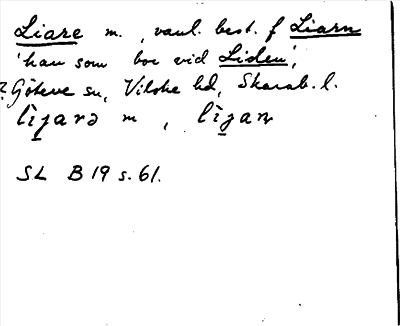 Liare m., vanl. best. f Liarn
'han som bor vid Liden',
? Göteve sn, Vilske hd, Skarab. l.
lìȷarə m , lìȷan
SL B 19 s. 61.